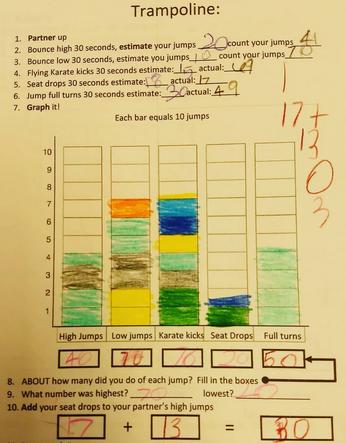 Trampoline:
1. Partner up
2. Bounce high 30 seconds, estimate your jumps 20 count your jumps 41
3. Bounce low 30 seconds, estimate you jumps 10 count your jumps 70
4. Flying Karate kicks 30 seconds estimate: 15 actual:
5. Seat drops 30 seconds estimate: 18 actual: 17
6. Jump full turns 30 seconds estimate: 30 actual: 49
7. Graph it!
17+
13
0
3
Each bar equals 10 jumps
10
9
8
7
6
5
4
3
2
1
High Jumps Low jumps Karate kicks Seat Drops Full turns
40 70 70 20 50
8. ABOUT how many did you do of each jump? Fill in the boxes
9. What number was highest? 70 lowest? 20
10. Add your seat drops to your partner's high jumps
17 + 13 = 30